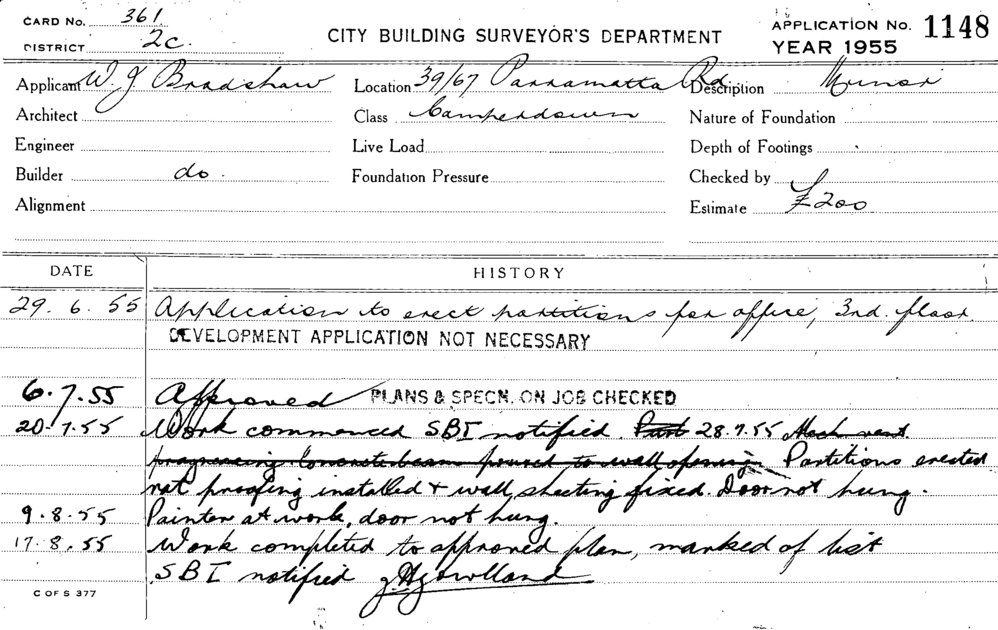 CARD No. 361
DISTRICT 2c.
CITY BUILDING SURVEYOR'S DEPARTMENT
APPLICATION No. 1148
YEAR 1955
Applicant W. J Bradshaw Location 39/67 Parramatta Rd Description Minor
Architect Class Camperdown Nature of Foundation
Engineer Live Load Depth of Footings
Builder do. Foundation Pressure Checked by
Alignment Estimate £200
DATE HISTORY
29. 6. 55 Application to erect partitions for office, 3rd. floor.
DEVELOPMENT APPLICATION NOT NECESSARY
6.7.55 Approved PLANS & SPECN. ON JOB CHECKED
20.7.55 Work commenced SBI notified. Part 28.7.55 Mech vent.
progressing Concrete beam poured to wall opening. Partitions erected
rat proofing installed & wall sheeting fixed. Door not hung.
9.8.55 Painter at work, door not hung.
17.8.55 Work completed to approved plan, marked of list
SBI notified
C OF S 377